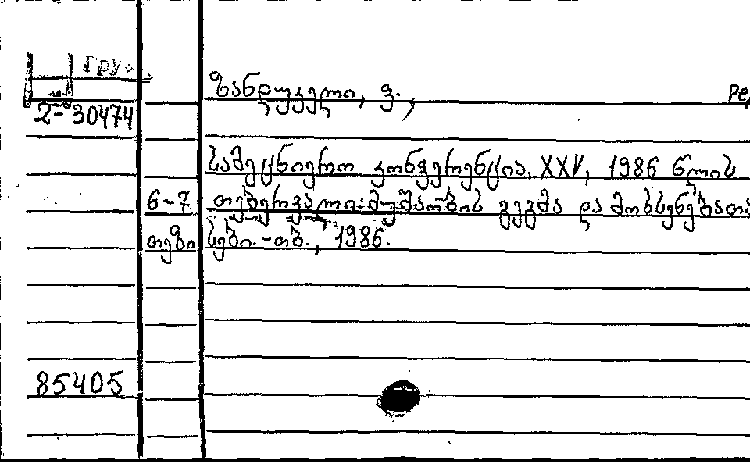 ГРУ
2-30474
ზანდუკელი, ფ., რე
სამეცნიერო კონფერენცია, XXV, 1986 წლის
6-7 თებერვალი: მუშაობის გეგმა და მოხსენებათა
თეზი სები. - თბ., 1986.
85405